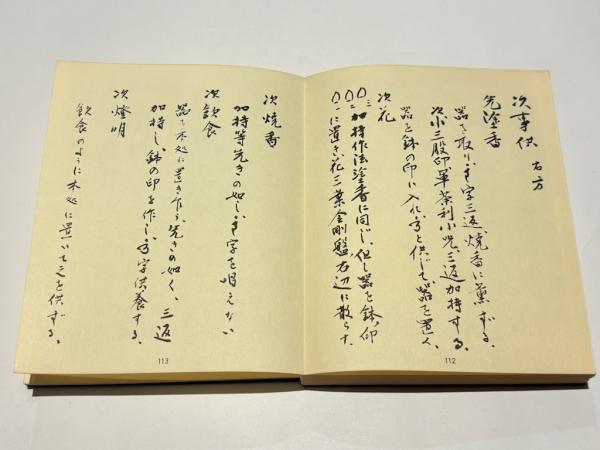 次事供 右方
先塗香
器を取り、字三返、焼香に薫ずる、
次小三股印、軍荼利小呪、三返加持する、
器を鉢の印に入れ、と供じて、器を置く、
次花
加持作法塗香に同じ、但し器を鉢印
に置き、花三葉金剛盤、右辺に散らす、
112
次焼香
加持等先きの如し、字を唱えない
次飲食
器を本処に置き乍ら、先きの如く、三返
加持し、鉢の印を作し、字供養する、
次燈明
飲食のように本処に置いて之を供ずる、
113